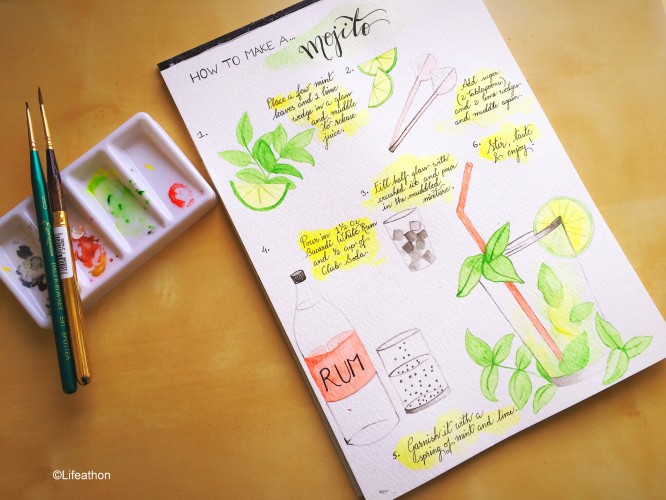 HOW TO MAKE A... Mojito
1.
Place a few mint
leaves and 1 lime
wedge in a glass
and muddle
to release
juice.
2.
Add sugar
(2 tablespoons)
and 2 lime wedges
and muddle again.
3. Fill half glass with
crushed ice and pour
in the muddled
mixture.
4.
Pour in 1½ Oz
Bacardi White Rum
and ½ cup of
Club Soda.
RUM
5. Garnish it with a
spring of mint and lime.
6. Stir, taste
& enjoy!
©Lifeathon